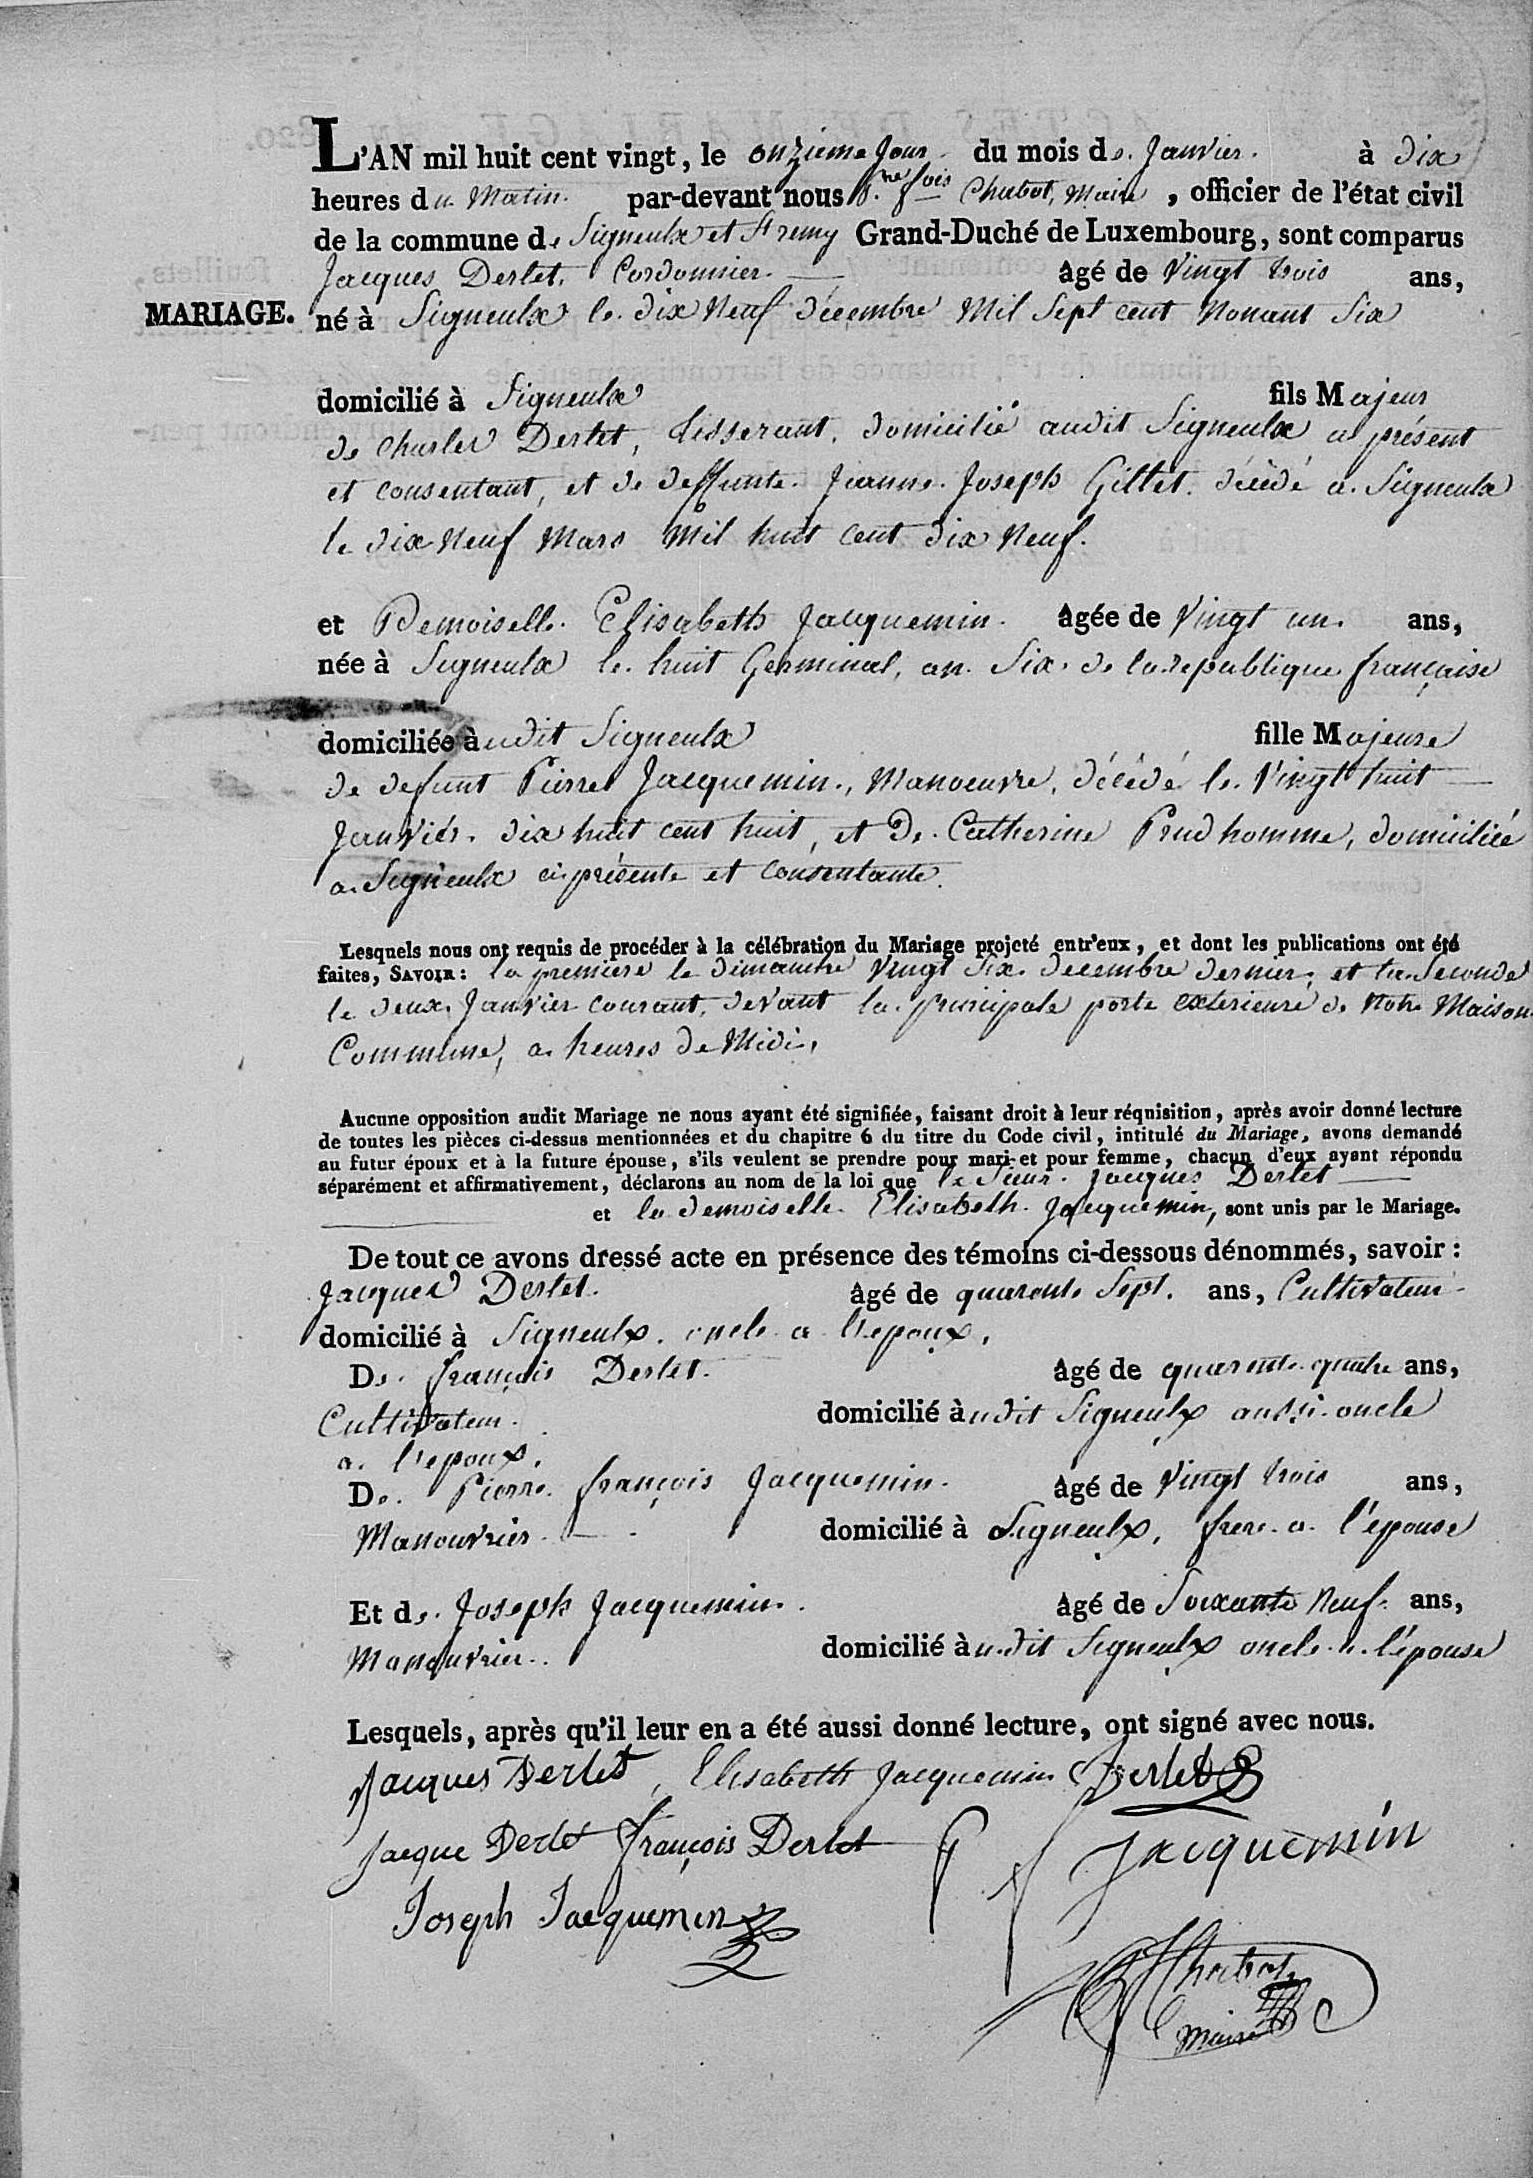 L'AN mil huit cent vingt, le onzieme Jour du mois de Janvier. à dix
heures du Matin. par-devant nous fois Chabot, Maire, officier de l'état civil
de la commune de Signeulx et St remy Grand-Duché de Luxembourg, sont comparus
Jacques Derlet, Cordonnier. âgé de Vingt trois ans,
MARIAGE. né à Signeulx le dix Neuf décembre Mil Sept cent Nonant Six
domicilié à Signeulx fils Majeur
de Charles Derlet, tisserant, domicilié audit Signeulx a présent
et consentant, et de deffunte Jeanne Joseph Gillet décédé a Signeulx
le dix Neuf Mars Mil huit cent dix Neuf.
et Demoiselle Elisabeth Jacquemin. âgée de Vingt un ans,
née à Signeulx le huit Germinal, an Six de la republique française
domiciliée àudit Signeulx fille Majeure
de defunt Pierre Jacquemin, Manoeuvre, décédé le Vingt huit
Janvier dix huit cent huit, et de Catherine Prudhomme, domiciliée
a Signeulx ci présente et consentante.
Lesquels nous ont requis de procéder à la célébration du Mariage projeté entr'eux, et dont les publications ont été
faites, SAVOIR: la premiere le dimanche Vingt Six decembre dernier, et la Seconde
le deux Janvier courant, devant la principale porte exterieure de Notre Maison
Commune, a heures de Midi,
Aucune opposition audit Mariage ne nous ayant été signifiée, faisant droit à leur réquisition, après avoir donné lecture
de toutes les pièces ci-dessus mentionnées et du chapitre 6 du titre du Code civil, intitulé du Mariage, avons demandé
au futur époux et à la future épouse, s'ils veulent se prendre pour mari et pour femme, chacun d'eux ayant répondu
séparément et affirmativement, déclarons au nom de la loi que le Sieur Jacques Derlet
et la demoiselle Elisabeth Jacquemin, sont unis par le Mariage.
De tout ce avons dressé acte en présence des témoins ci-dessous dénommés, savoir:
Jacques Derlet. âgé de quarente Sept. ans, Cultivateur
domicilié à Signeulx. oncle a l'epoux,
De. françois Derlet. âgé de quarente quatre ans,
Cultivateur. domicilié àudit Signeulx aussi oncle
a. l'epoux.
De. Pierre françois Jacquemin. âgé de Vingt trois ans,
Manouvrier. domicilié à Signeulx, frere a l'épouse
Et de. Joseph Jacquemin. âgé de Soixante Neuf. ans,
Manouvrier. domicilié àudit Signeulx oncle a l'épouse
Lesquels, après qu'il leur en a été aussi donné lecture, ont signé avec nous.
Jacques Derlet, Elisabeth Jacquemin C Derlet
Jacque Derlet François Derlet P f Jacquemin
Joseph Jacquemin
Chabot
Maire